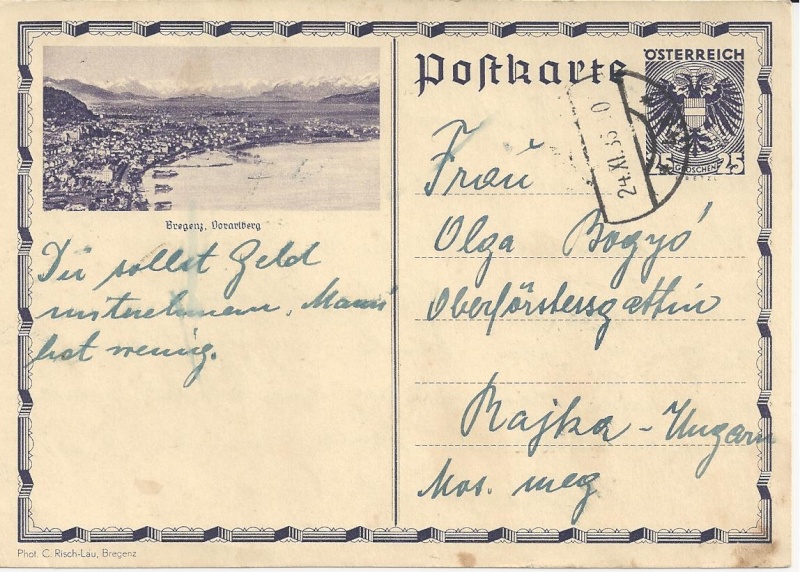 Postkarte
ÖSTERREICH
25 GROSCHEN 25
24.XI.35
Bregenz, Vorarlberg
Du sollst Geld
mitnehmen, Mami
hat wenig.
Frau
Olga Bogyó
Oberförstersgattin
Rajka - Ungarn
Mos. meg
Phot. C. Risch-Lau, Bregenz